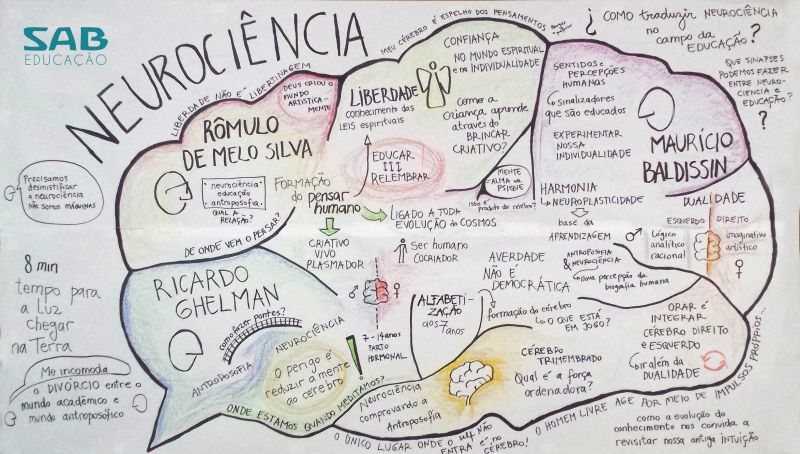 SAB
EDUCAÇÃO
NEUROCIÊNCIA
MEU CÉREBRO É ESPELHO DOS PENSAMENTOS
LIBERDADE NÃO É LIBERTINAGEM
¿ COMO traduzir NEUROCIÊNCIA
no
campo da
EDUCAÇÃO?
QUE SINAPSES
PODEMOS FAZER
ENTRE NEURO-
CIENCIA e
EDUCAÇÃO?
?
?
DEUS CRIOU O
MUNDO
ARTISTICA-
MENTE
RÔMULO
DE MELO SILVA
• neurociência
educação
• antroposofia •
QUAL A
RELAÇÃO?
DE ONDE VEM O PENSAR?
LIBERDADE
conhecimento das
LEIS espirituais
EDUCAR
III
RELEMBRAR
CONFIANÇA
NO MUNDO ESPIRITUAL
e na INDIVIDUALIDADE
Como a
criança aprende
através do
BRINCAR
CRIATIVO?
MENTE
ALMA ou
PSIQUE
isso é
produto do cérebro?
SENTIDOS e
PERCEPÇÕES
HUMANAS
Sinalizadores
que são educados
EXPERIMENTAR
NOSSA
INDIVIDUALIDADE
MAURÍCIO
BALDISSIN
HARMONIA
NEUROPLASTICIDADE
base da
APRENDIZAGEM
ANTROPOSOFIA
&
NEUROCIÊNCIA
nova percepção da
biografia humana
DUALIDADE
ESQUERDO
DIREITO
Lógico
analítico
racional
imaginativo
artístico
Precisamos
desmistificar
a neurociência
NÃO SOMOS MÁQUINAS
FORMAÇÃO
do pensar
humano
CRIATIVO
VIVO
PLASMADOR
LIGADO A TODA
EVOLUÇÃO do COSMOS
Ser humano
COCRIADOR
A VERDADE
NÃO É
DEMOCRÁTICA
formação do cérebro
O QUE ESTÁ
EM JOGO?
ALFABETI-
ZAÇÃO
aos 7
anos
7-14 anos
PARTO
HORMONAL
8 min
tempo para
a Luz
chegar
na Terra
Me incomoda
o DIVÓRCIO entre o
mundo acadêmico e
mundo antroposófico
RICARDO
GHELMAN
Como fazer pontes?
NEUROCIÊNCIA
ANTROPOSOFIA
O perigo é
reduzir a mente
ao cérebro
ONDE ESTAMOS QUANDO MEDITAMOS?
Neurociência
comprovando a
Antroposofia
CÉREBRO
TRIMEMBRADO
Qual é a força
ordenadora?
ORAR É
INTEGRAR
CÉREBRO DIREITO
e ESQUERDO
ir além da
DUALIDADE
O ÚNICO LUGAR ONDE O self NÃO
ENTRA É no CÉREBRO!
O HOMEM LIVRE AGE POR MEIO DE IMPULSOS PRÓPRIOS...
como a evolução do
conhecimento nos convida a
revisitar nossa antiga INTUIÇÃO